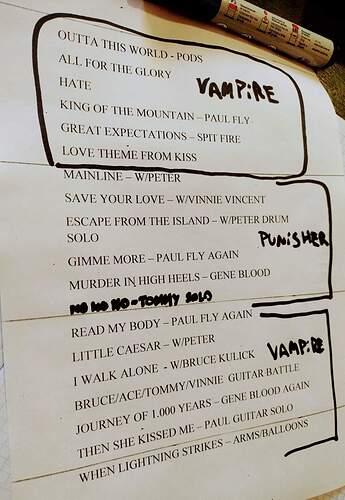 OUTTA THIS WORLD - PODS
ALL FOR THE GLORY
HATE
VAMPiRE
KING OF THE MOUNTAIN – PAUL FLY
GREAT EXPECTATIONS – SPIT FIRE
LOVE THEME FROM KISS
MAINLINE – W/PETER
SAVE YOUR LOVE – W/VINNIE VINCENT
ESCAPE FROM THE ISLAND – W/PETER DRUM
SOLO
PUNiSHER
GIMME MORE – PAUL FLY AGAIN
MURDER IN HIGH HEELS – GENE BLOOD
NO NO NO – TOMMY SOLO
READ MY BODY – PAUL FLY AGAIN
LITTLE CAESAR – W/PETER
VAMPiRE
I WALK ALONE - W/BRUCE KULICK
BRUCE/ACE/TOMMY/VINNIE GUITAR BATTLE
JOURNEY OF 1.000 YEARS – GENE BLOOD AGAIN
THEN SHE KISSED ME – PAUL GUITAR SOLO
WHEN LIGHTNING STRIKES – ARMS/BALLOONS